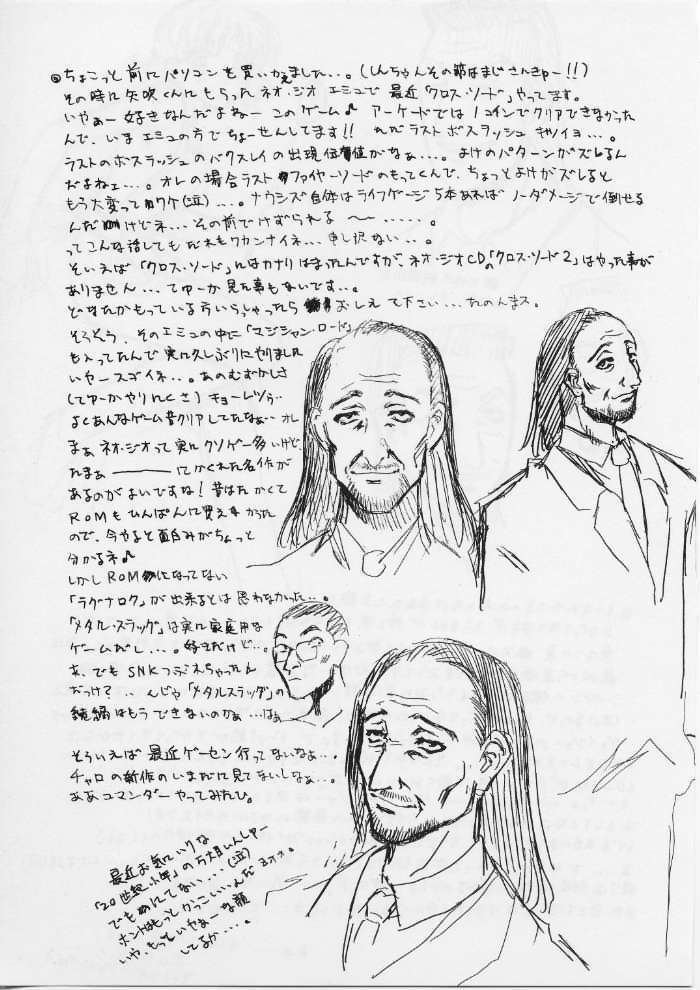 ◎ちょこっと前にパソコンを買いかえました…。(しんちゃんその節はまじさんきゅー!!)
その時に矢吹くんにもらったネオ・ジオエミュで最近「クロス・ソード」やってます。
いやぁー好きなんだよねーこのゲーム♪ アーケードでは1コインでクリアできなかった
んで、いまエミュの方でちょーせんしてます!! ただラストボスラッシュキツイヨ…。
ラストのボスラッシュのバクスレイの出現位置がなぁ…。よけのパターンがズレるん
だよねェ…。オレの場合ラストファイヤーソードのもってくんで、ちょっとよけがズレると
もう大変ってワケ(泣)…。ナウシズ自体はライフゲージ5本あれば ノーダメージで倒せる
んだけどネ…その前でけずられる 〜……。
ってこんな話してもだれもワカンナイネ…申し訳ない…。
そいえば「クロス・ソード」にはカナリはまったんですが、ネオ・ジオCDの「クロス・ソード2」はやった事が
ありません…てゆーか見た事もないです…。
どなたかもっている方いらっしゃったら おしえて下さい…たのんます。
そうそう、そのエミュの中に「マジシャン・ロード」
も入ってたんで実に久しぶりにやりました
いやースゴイネ…。あのむずかしさ
(てゆーかやりにくさ)キョーレツゥ…
よくあんなゲーム昔クリアしてたなぁ…オレ
まぁネオ・ジオって実にクソゲー多いけど
たまぁ――にかくれた名作が
あるのがよいですね!昔はたかくて
ROMもひんぱんに買えなかった
ので、今やると面白みがちょっと
分かるネ♪
しかしROMになってない
「ラグナロク」が出来るとは思わなかった…。
「メタル・スラッグ」は実に家庭用な
ゲームだし…。好きだけど…。
あ、でもSNKつぶれちゃったん
だっけ?…んじゃ「メタルスラッグ」の
続編はもうできないのかぁ…はぁ
そういえば最近ゲーセン行ってないなぁ…。
チャロの新作のいまだに見てないしなぁ…。
ああコマンダーやってみたひ。
最近お気にいりな
「20世紀少年」の万丈目しんしてー
でもにてない…(泣)
ホントはもっとかっこいいんだヨォォ。
いや、もっといやぁーな顔
してるか…。